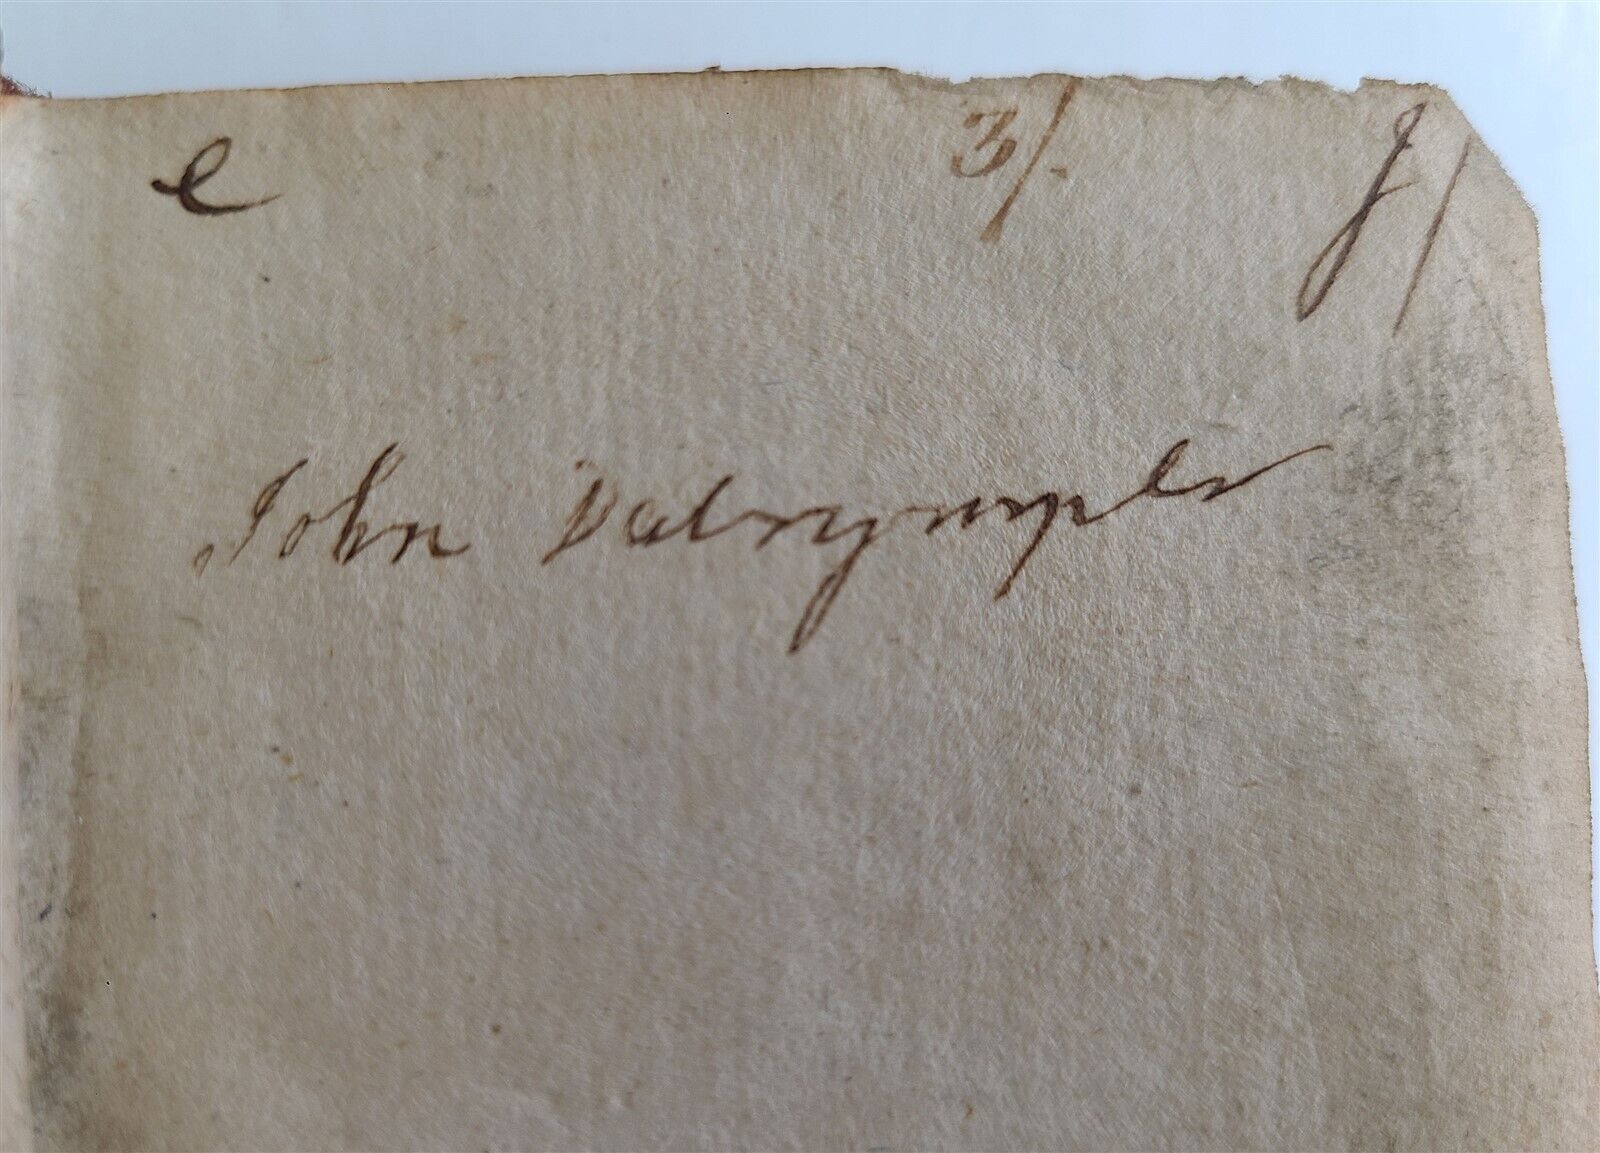 e 3/. f/
John Dalrymple